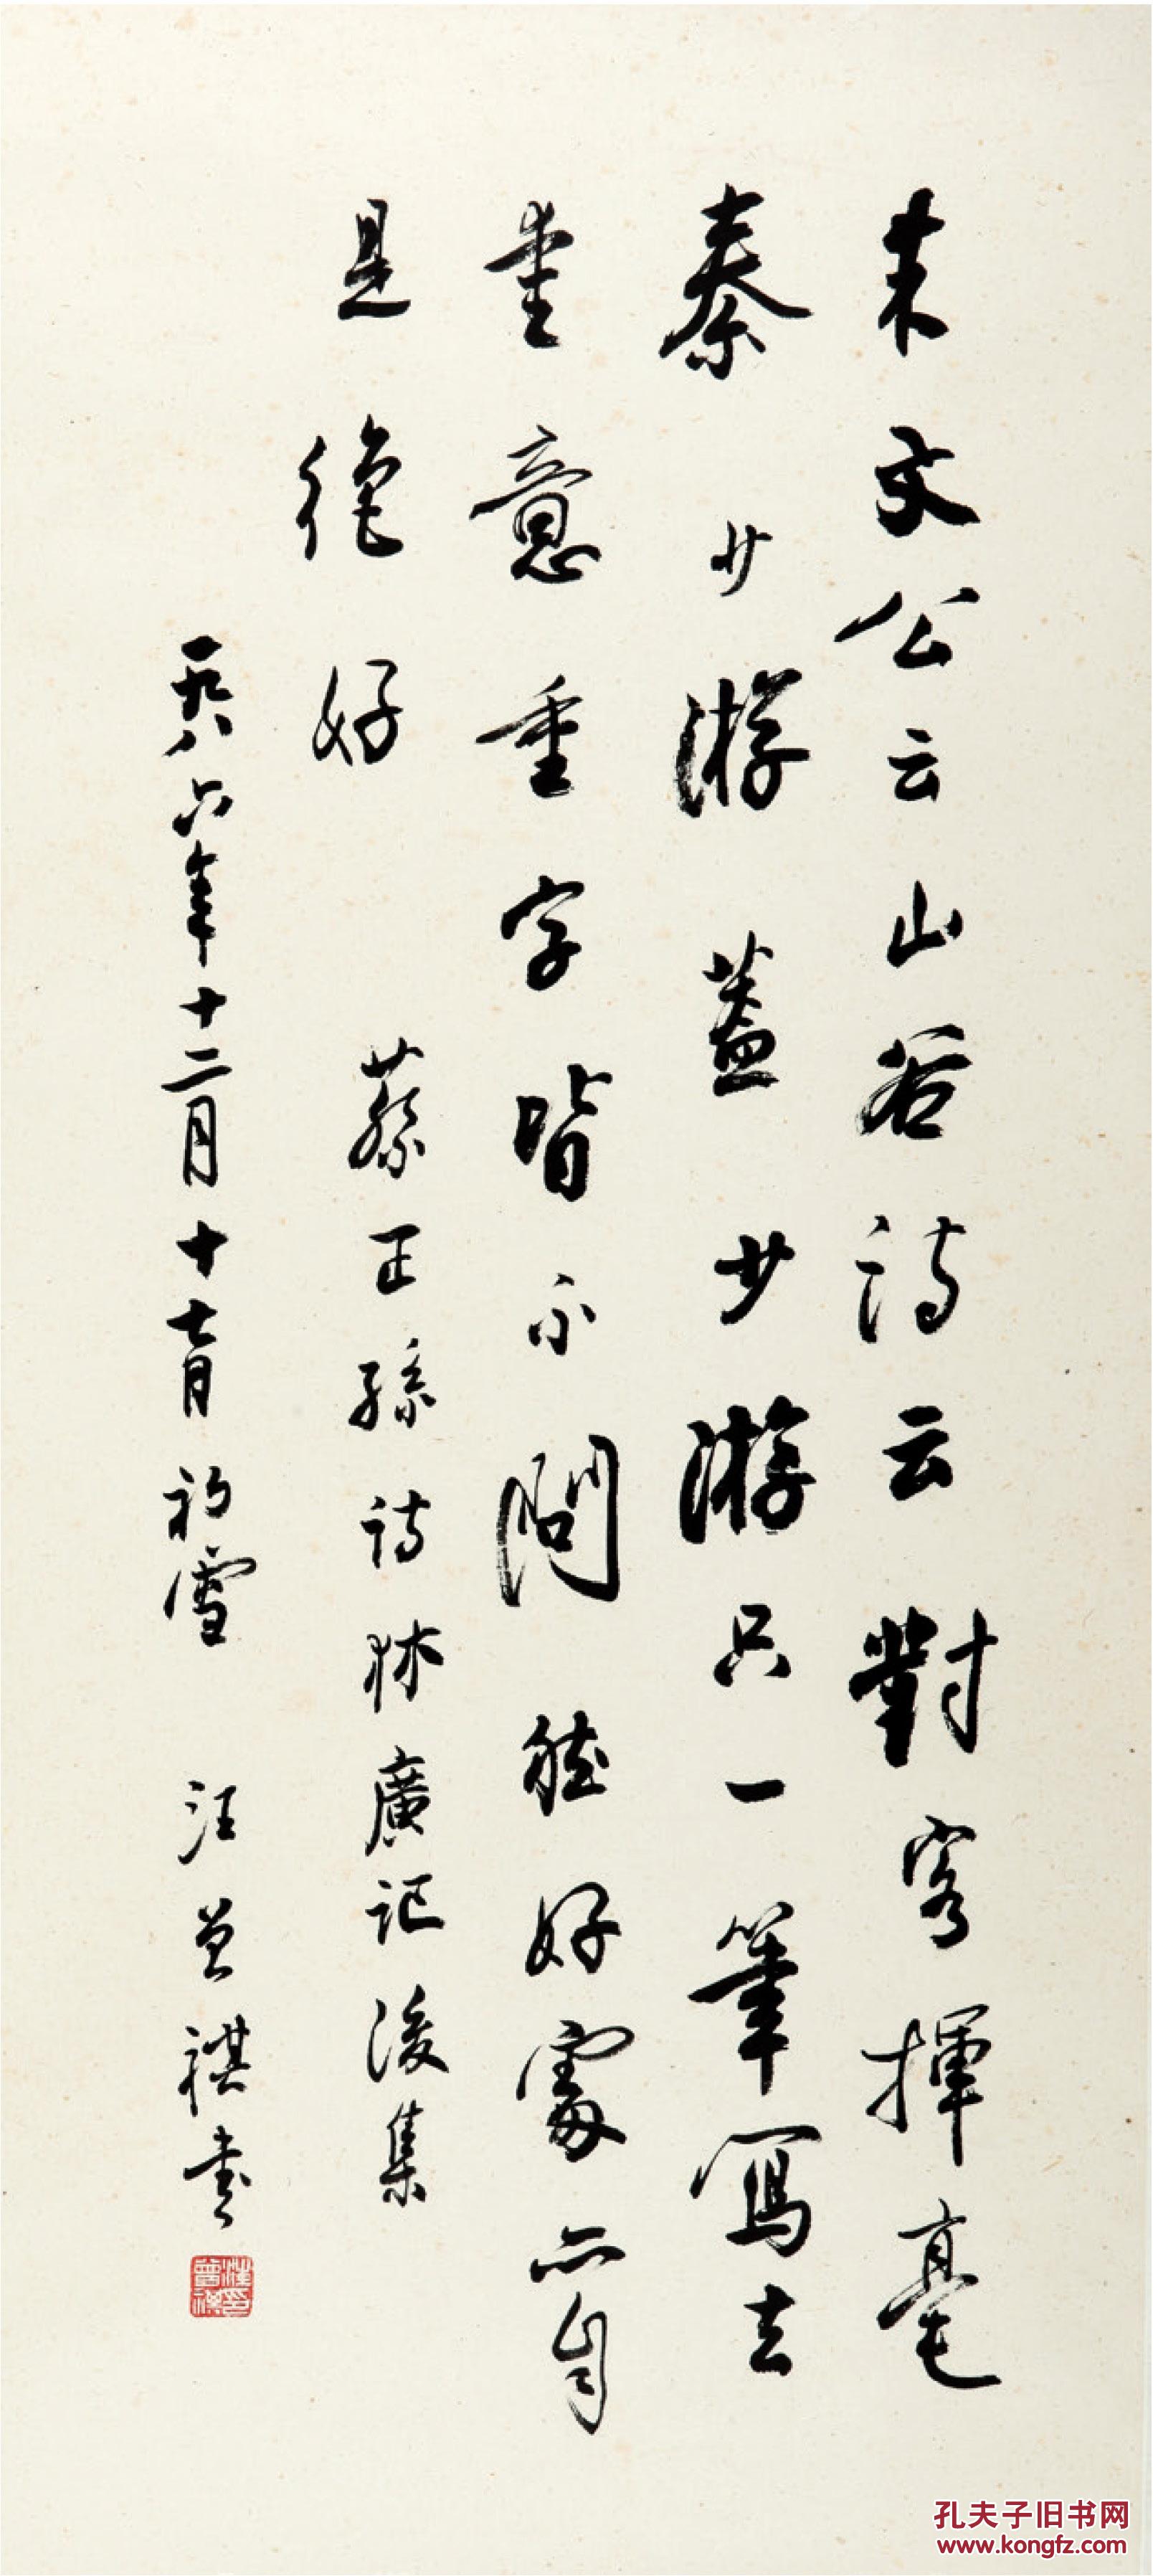 朱文公云山谷詩云對客揮毫
秦少游蓋少游只一筆寫去
重意重字皆不問然好處亦自
是絕好 蔡正孫詩林廣記後集
一九八六年十二月十七日初雪 汪曾祺書
汪曾祺印
孔夫子旧书网
www.kongfz.com